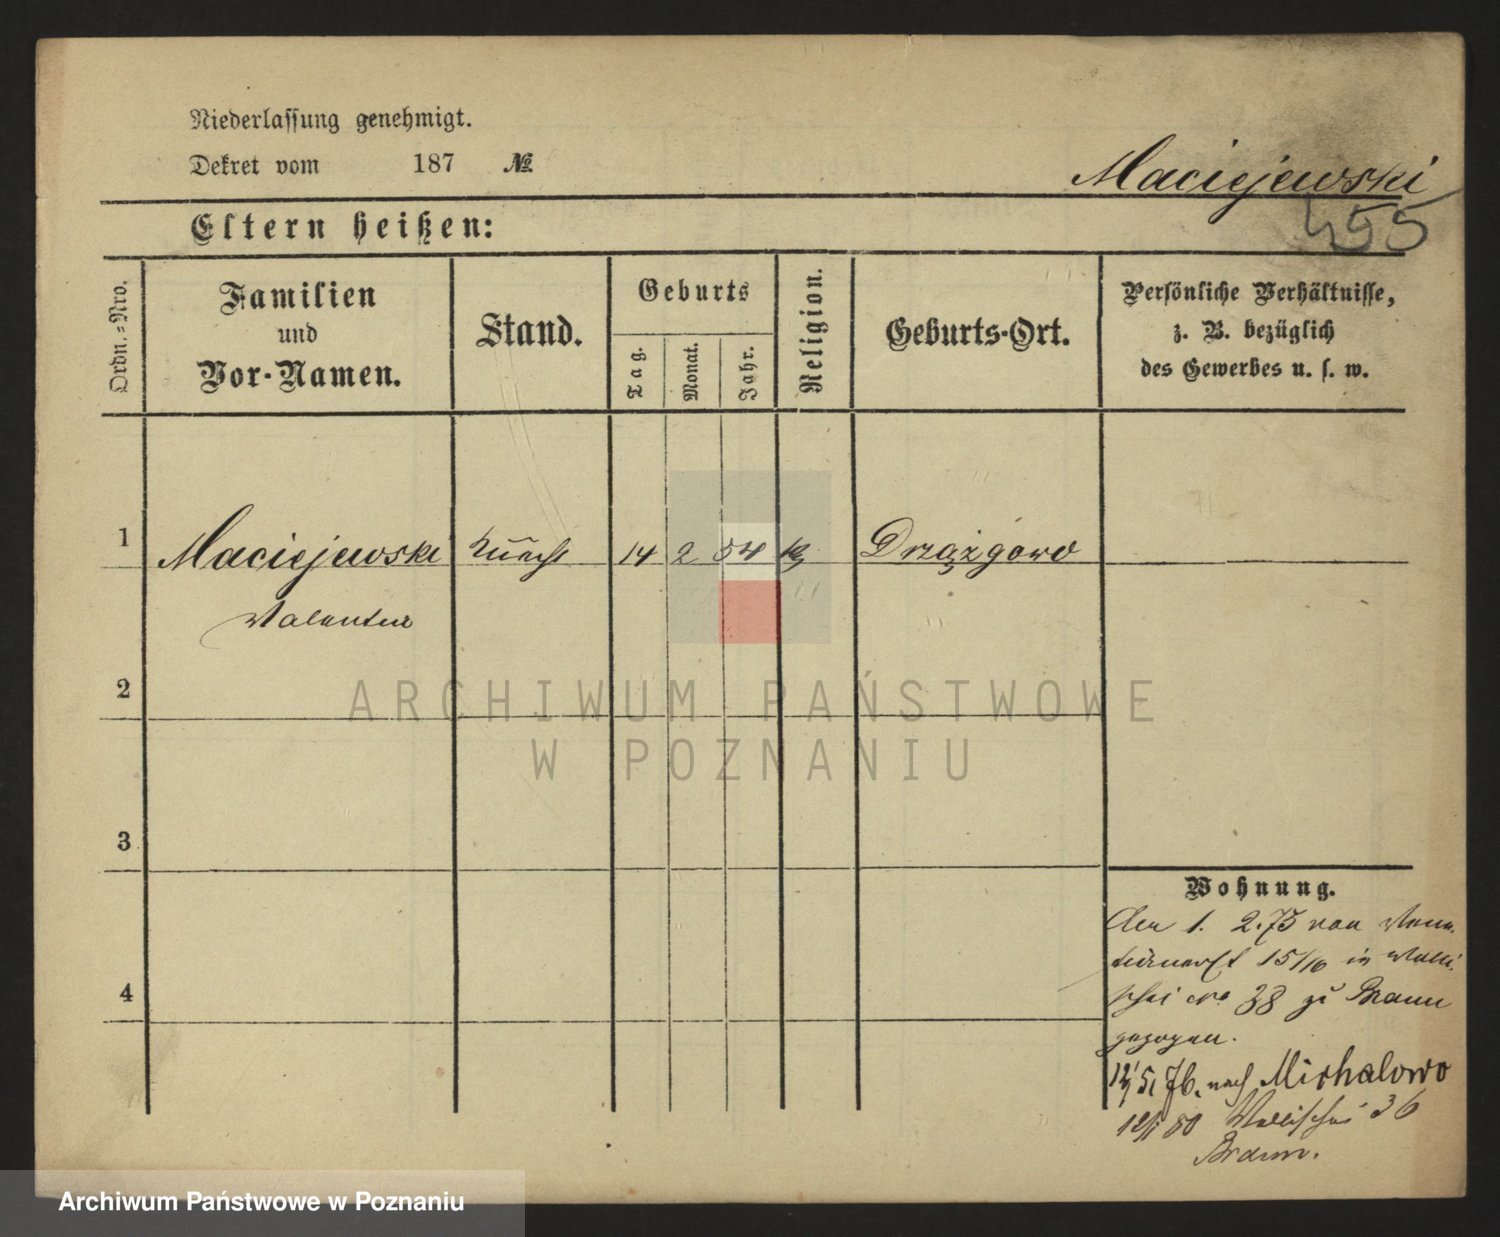 Niederlassung genehmigt.
Dekret vom 187 №
Maciejewski
455
Eltern heißen:
Ordn.-Nro.
Familien
und
Vor-Namen.
Stand.
Geburts
Tag.
Monat.
Jahr.
Religion.
Geburts-Ort.
Persönliche Verhältnisse,
z. B. bezüglich
des Gewerbes u. s. w.
1 Maciejewski Knecht 14 2 54 k Drążgowo
Valentin
2
3
4
Wohnung.
Den 1. 2. 75 von
15/16 in Walli
schei No 38 zu Braun
gezogen.
12/5. 76. nach Michalowo
12/1 80 Wallischei 36
Braun.
ARCHIWUM PAŃSTWOWE
W POZNANIU
Archiwum Państwowe w Poznaniu